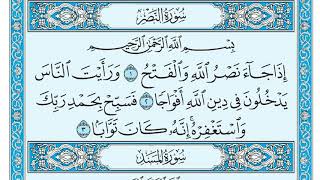 سُورَةُ النَّصْرِ
بِسْمِ اللَّهِ الرَّحْمَٰنِ الرَّحِيمِ
إِذَا جَآءَ نَصْرُ اللَّهِ وَالْفَتْحُ ١ وَرَأَيْتَ النَّاسَ
يَدْخُلُونَ فِي دِينِ اللَّهِ أَفْوَاجًا ٢ فَسَبِّحْ بِحَمْدِ رَبِّكَ
وَاسْتَغْفِرْهُ إِنَّهُ كَانَ تَوَّابًا ٣
سُورَةُ المَسَدِ